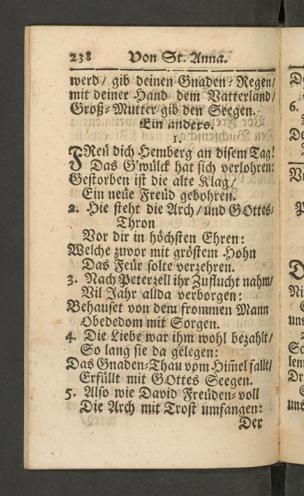 238 Von St. Anna.
werd/ gib deinen Gnaden-Regen/
mit deiner Hand dem Vatterland/
Groß-Mutter gib den Seegen.
Ein anders.
1.
FReü dich Hemberg an disem Tag!
Das G'wülck hat sich verlohren:
Gestorben ist die alte Klag/
Ein neüe Freüd gebohren.
2. Hie steht die Arch/ und GOttes-
Thron
Vor dir in höchsten Ehren:
Welche zuvor mit gröstem Hohn
Das Feür solte verzehren.
3. Nach Peterzell ihr Zuflucht nahm/
Vil Jahr allda verborgen:
Behauset von dem frommen Mann
Obededom mit Sorgen.
4. Die Liebe war ihm wohl bezahlt/
So lang sie da gelegen:
Das Gnaden-Thau vom Him̃el fallt/
Erfüllt mit GOttes Seegen.
5. Also wie David Freüden-voll
Die Arch mit Trost umfangen:
Der